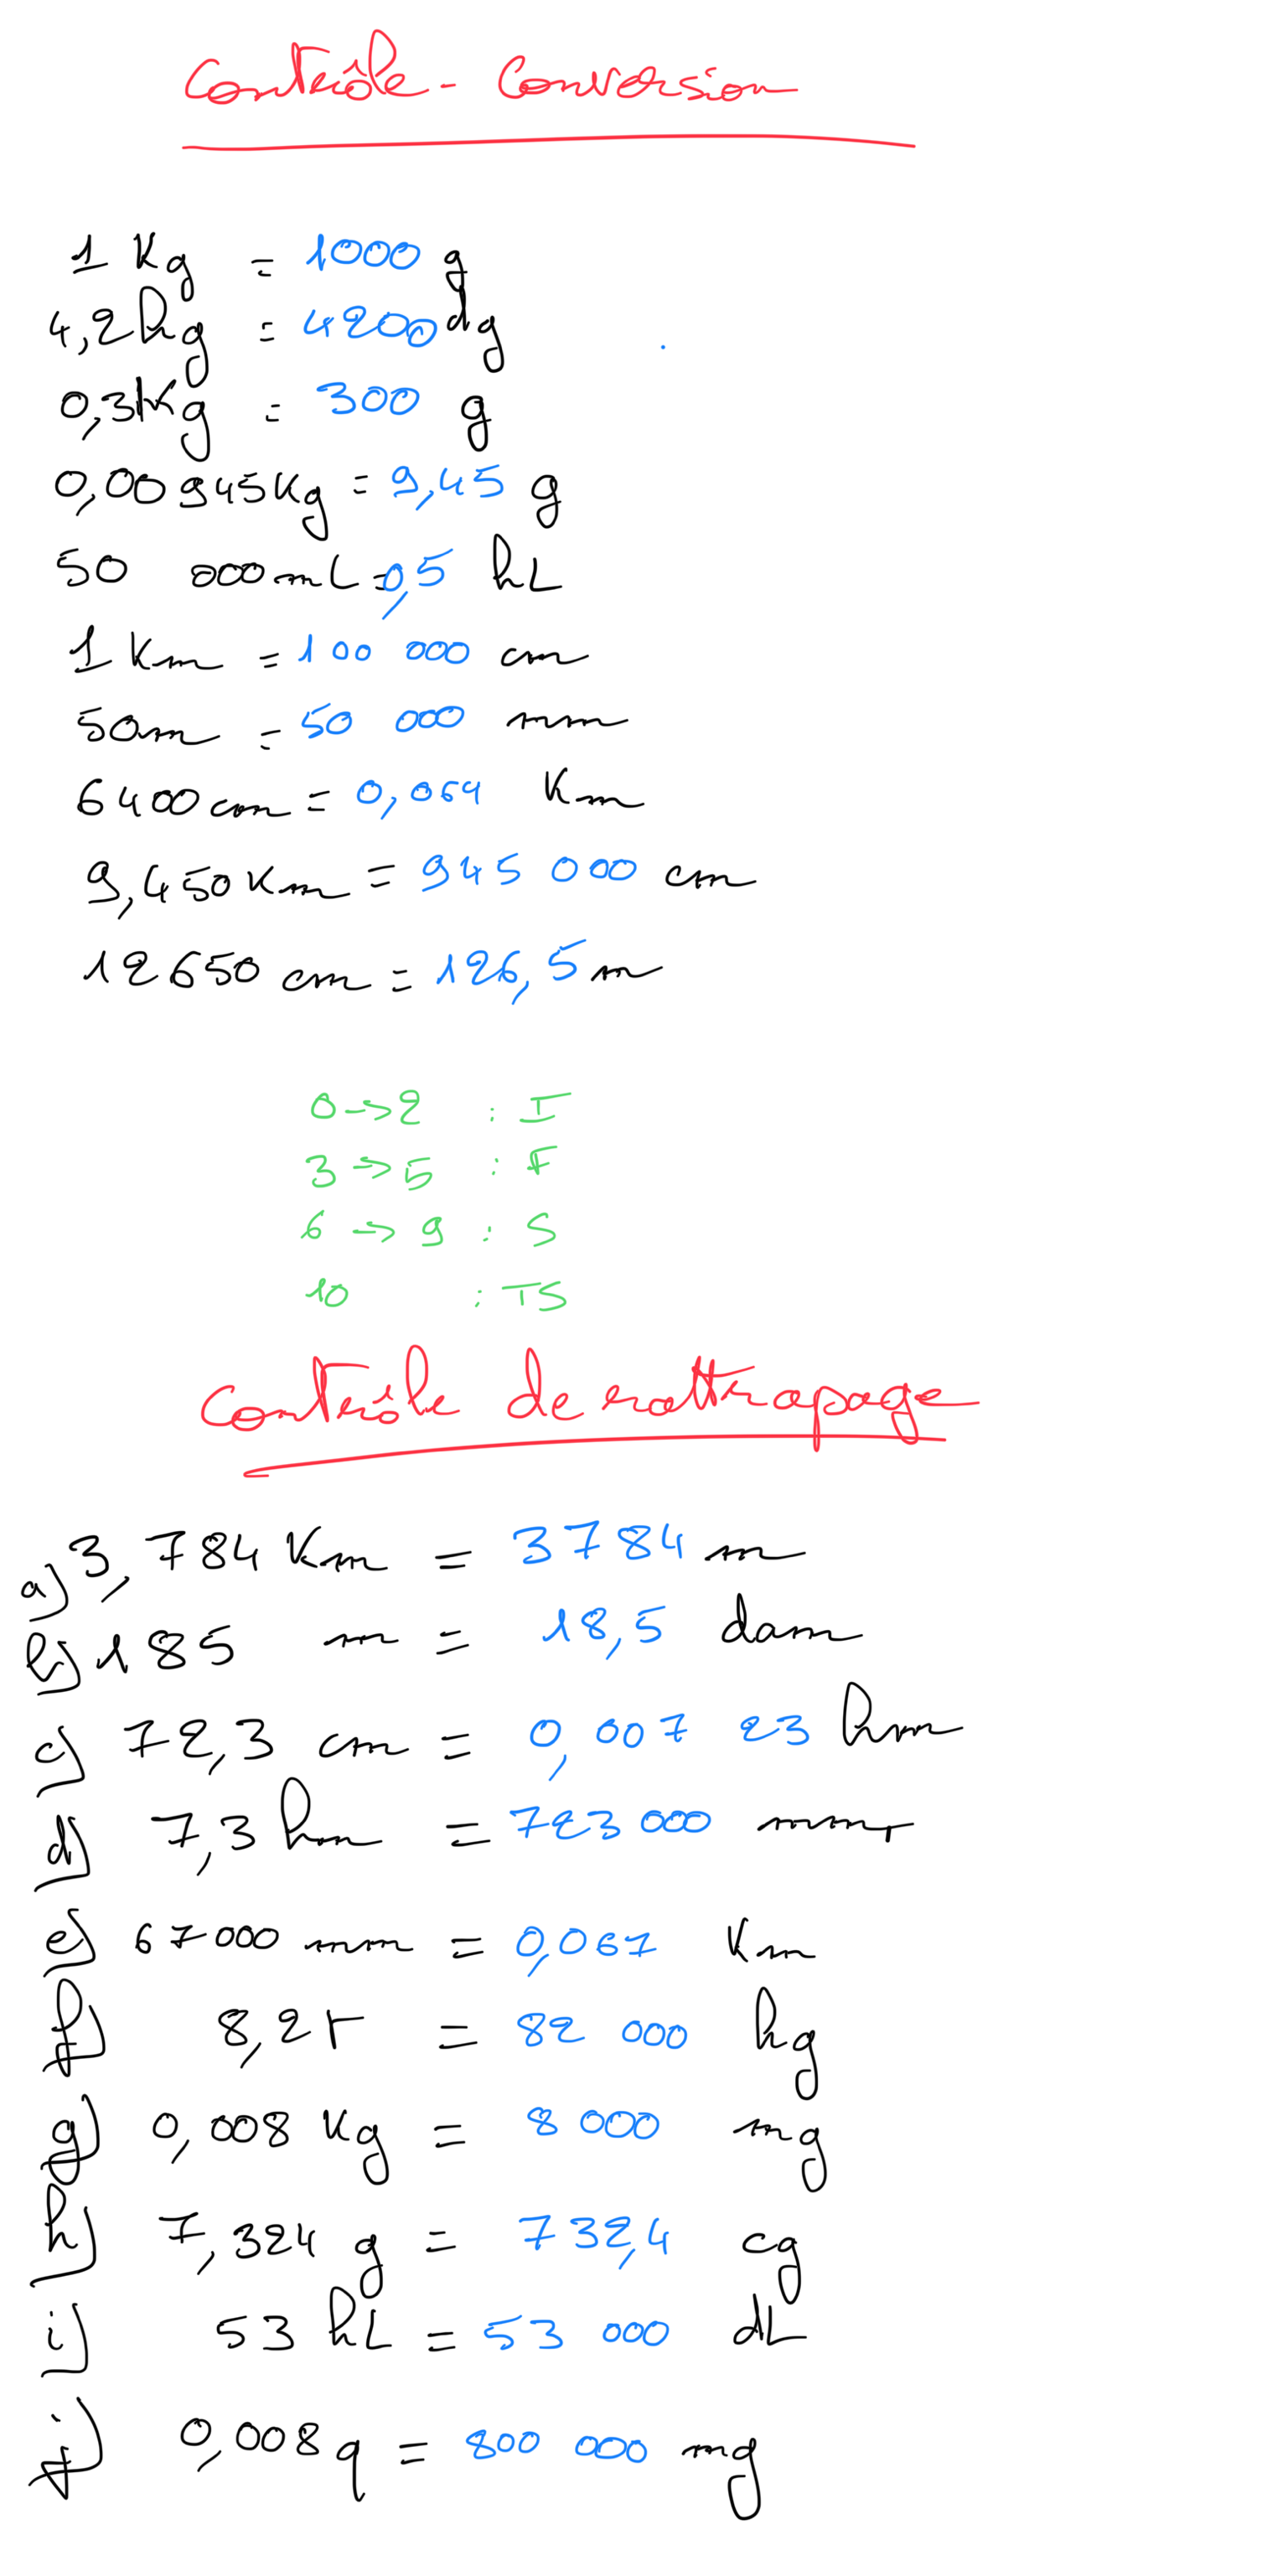 Contrôle - Conversion
1 Kg = 1000 g
4,2hg = 4200 dg
0,3Kg = 300 g
0,00945Kg = 9,45 g
50 000mL = 0,5 hL
1 Km = 100 000 cm
50m = 50 000 mm
6400cm = 0,064 Km
9,450Km = 945 000 cm
12650 cm = 126,5 m
0->2 : I
3->5 : F
6->9 : S
10 : TS
Contrôle de rattrapage
a) 3,784 Km = 3784 m
b) 185 m = 18,5 dam
c) 72,3 cm = 0,007 23 hm
d) 7,3 hm = 723 000 mm
e) 67000 mm = 0,067 Km
f) 8,2T = 82 000 hg
g) 0,008 Kg = 8 000 mg
h) 7,324 g = 732,4 cg
i) 53 hL = 53 000 dL
j) 0,008 q = 800 000 mg